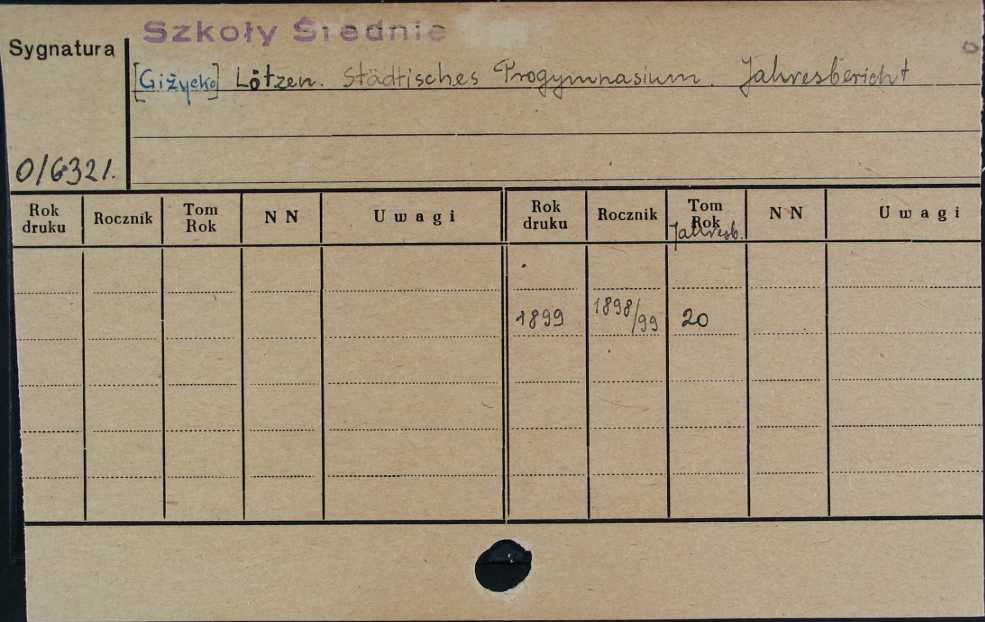 Szkoły Średnie
Sygnatura
[Giżycko] Lötzen. Städtisches Progymnasium. Jahresbericht
0/6321.
Rok druku Rocznik Tom Rok NN Uwagi Rok druku Rocznik Tom Rok NN Uwagi
Jahresb.
1899 1898/99 20